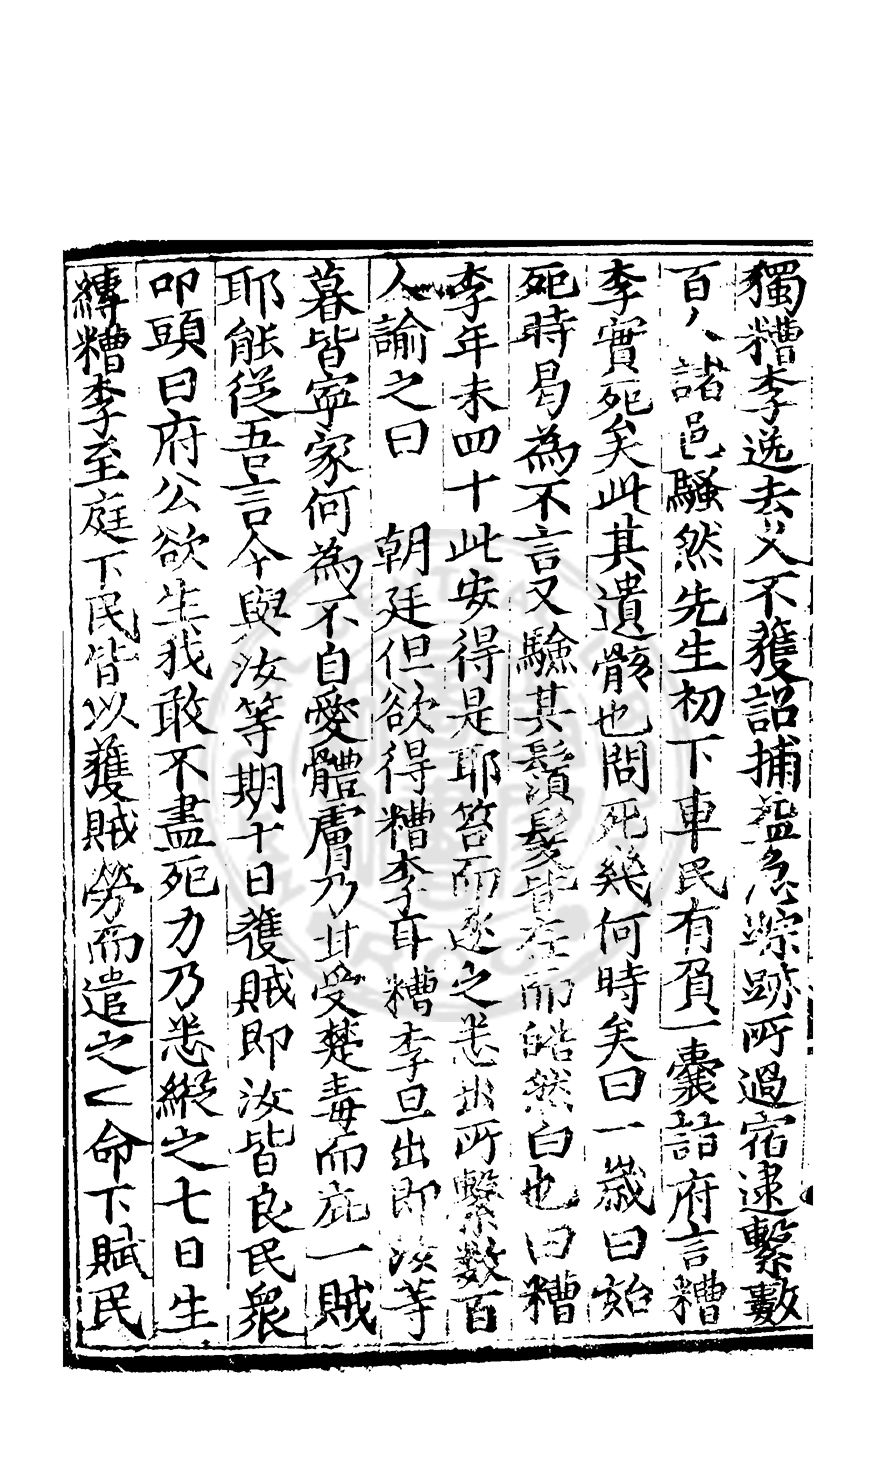 獨糟李逸去久不獲詔捕益急踪跡所過宿逮繫數
百人諸邑騷然先生初下車民有負一囊詣府言糟
李實死矣此其遺骸也問死幾何時矣曰一歲曰始
死時曷為不言又驗其鬚髮皆在而皓然白也曰糟
李年未四十此安得是耶笞而逐之悉出所繫數百
人諭之曰 朝廷但欲得糟李耳糟李旦出即汝等
暮皆寧家何為不自愛體膚乃甘受楚毒而庇一賊
耶能從吾言今與汝等期十日獲賊即汝皆良民衆
叩頭曰府公欲生我敢不盡死力乃悉縱之七日生
縛糟李至庭下民皆以獲賊勞而遣之亡命下賦民